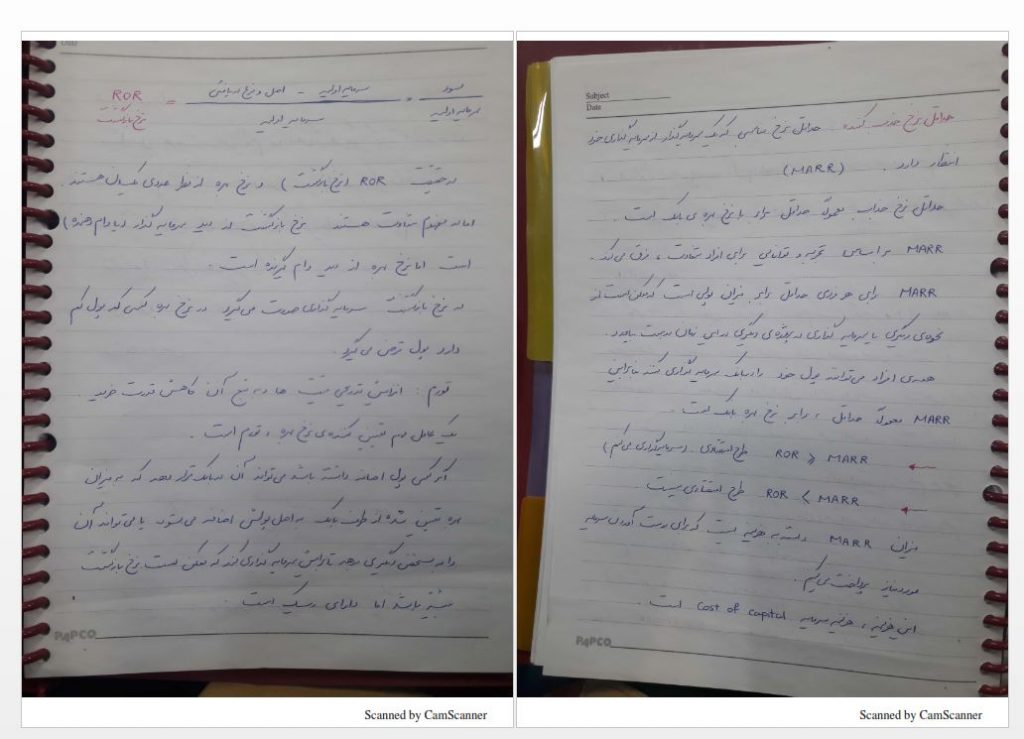 ROR
نرخ بازگشت
= سرمایه اولیه - اصل و فرع دریافتی / سرمایه اولیه = سود / سرمایه اولیه
در حقیقت ROR (نرخ بازگشت) و نرخ بهره از نظر عددی یکسان هستند.
اما در مفهوم متفاوت هستند نرخ بازگشت از دید سرمایه گذار (یا وام دهنده)
است اما نرخ بهره از دید وام گیرنده است.
در نرخ بازگشت سرمایه گذاری صورت می گیرد در نرخ بهره کسی که پول کم
دارد پول قرض می گیرد.
تورم: افزایش تدریجی قیمت ها و به تبع آن کاهش قدرت خرید.
یک عامل مهم تعیین کننده ی نرخ بهره، تورم است.
اگر کسی پول اضافه داشته باشد می تواند آن در بانک قرار دهد که به میزان
بهره تعیین شده از طرف بانک به اصل پولش اضافه می شود. یا می تواند آن
را به شخص دیگری بدهد تا برایش سرمایه گذاری کند که ممکن است نرخ بازگشت
بیشتر باشد اما دارای ریسک است.
PAPCO
Scanned by CamScanner
Subject
Date
حداقل نرخ جذب کننده: حداقل نرخ مناسبی که یک سرمایه گذار از سرمایه گذاری خود
انتظار دارد. (MARR)
حداقل نرخ جذاب معمولا حداقل برابر با نرخ بهره ی بانک است.
MARR بر اساس تجربه و توانایی برای افراد متفاوت، فرق می کند.
MARR برای هر فردی حداقل برابر میزان پولی است که ممکن است از
نحوه ی دیگری با سرمایه گذاری در پروژه ی دیگری در این زمان بدست بیاورد.
همه ی افراد می توانند پول خود را در بانک سرمایه گذاری کنند بنابراین
MARR معمولا حداقل، برابر نرخ بهره بانک است.
ROR ⩾ MARR طرح اقتصادی (سرمایه گذاری می کنیم)
ROR < MARR طرح اقتصادی نیست
میزان MARR وابسته به هزینه ایست که برای بدست آوردن سرمایه
مورد نیاز پرداخت می کنیم.
این هزینه، هزینه سرمایه cost of capital است.
PAPCO
Scanned by CamScanner